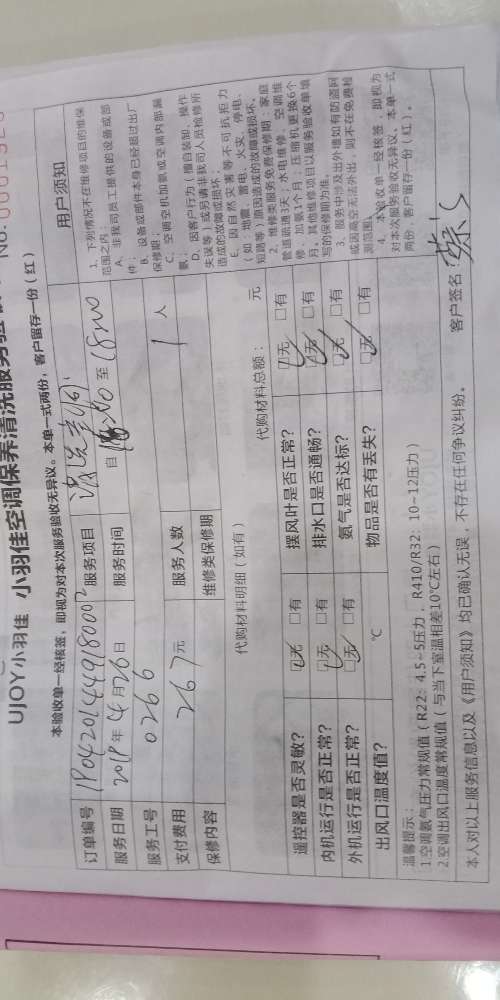 No. 0001926
UJOY小羽佳 小羽佳空调保养清洗服务验收
本验收单一经核签，即视为对本次服务验收无异议。本单一式两份，客户留存一份（红）
订单编号 服务项目
服务日期 2019年4月26日 服务时间 自 至
服务工号 0266
支付费用 267元 服务人数 1人
保修内容 维修类保修期
代购材料明细（如有） 代购材料总额： 元
遥控器是否灵敏？ ☑无 □有 摆风叶是否正常？ ☑无 □有
内机运行是否正常？ ☑无 □有 排水口是否通畅？ ☑无 □有
外机运行是否正常？ ☑无 □有 氨气是否达标？ ☑无 □有
出风口温度值？ ℃ 物品是否有丢失？ ☑无 □有
温馨提示：
1.空调氨气压力常规值（R22：4.5~5压力，R410/R32：10~12压力）
2.空调出风口温度常规值（与当下室温相差10℃左右）
本人对以上服务信息以及《用户须知》均已确认无误，不存在任何争议纠纷。 客户签名
用户须知
1、下列情况不在维修项目的维保
范围之内：
A、非我司员工提供的设备或部
件；
B、设备或部件本身已经超过出厂
保修期；
C、空调空机加氨或空调内部漏
氨；
D、因客户行为（擅自装卸、操作
失误等）或另请非我司人员检修所
造成的故障或损坏；
E、因自然灾害等不可抗拒力
（如：地震、雷电、火灾、停电、
短路等）原因造成的故障或损坏。
2、维修类服务免费保修期：家庭
管道疏通3天；水电维修、空调维
修、加氨1个月；压缩机更换6个
月。其他维修项目以服务验收单填
写的保修期为准。
3、服务中涉及出外墙如有防盗网
或因高空无法外出，则不在免费检
测范围。
4、本验收单一经核签，即视为
对本次服务验收无异议。本单一式
两份，客户留存一份（红）。